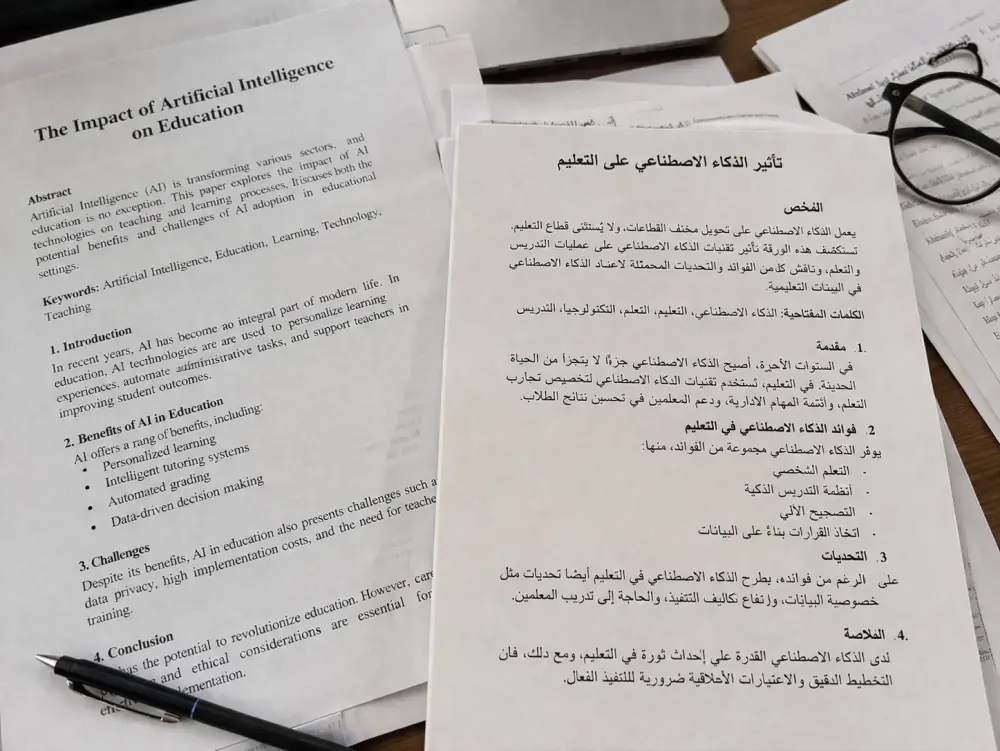 The Impact of Artificial Intelligence
on Education
Abstract
Artificial Intelligence (AI) is transforming various sectors, and
education is no exception. This paper explores the impact of AI
technologies on teaching and learning processes. Itiscuses both the
potential benefits and challenges of AI adoption in educational
settings.
Keywords: Artificial Intelligence, Education, Learning, Technology,
Teaching
1. Introduction
In recent years, AI has become ao integral part of modern life. In
education, AI tecthnologies are are used to personalize learning
experiences. automate administrative tasks, and support teachers in
improving student outcomes.
2. Benefits of AI in Education
AI offers a rang of benefits, including:
• Personalized learning
• Intelligent tutoring systems
• Automated grading
• Data-driven decision making
3. Challenges
Despite its benefits, AI in education also presents challenges such a
data privacy, high implementation costs, and the need for teache
training.
4. Conclusion
has the potential to revolutionize education. However, care
and ethical considerations are essential for
lementation.
تأثير الذكاء الاصطناعي على التعليم
الفخص
يعمل الذكاء الاصطناعي على تحويل مختف القطاعات، ولا يُستثنى قطاع التعليم.
تستكشف هذه الورقة تأثير تقنيات الذكاء الاصطناعي على عمليات التدريس
والتعلم، وناقش كل من الفوائد والتحديات المحمثلة لاعتاد الذكاء الاصطناعي
في البيئات التعليمية.
الكلمات المفتاحية: الذكاء الاصطناعي، التعليم، التعلم، التكنولوجيا، التدريس
1. مقدمة
في السنوات الأخرة، أصبح الذكاء الاصطناعي جزءًا لا يتجزأ من الحياة
الحدينة. في التعليم، تُستخدم تقنيات الذكاء الاصطناعي لتخصيص تجارب
التعلم، وأتتمة المهام الادارية، ودعم المعلمين في تحسين نتائج الطلاب.
2. فوائد الذكاء الاصطناعي في التعليم
يوفر الذكاء الاصطناعي مجموعة من الفوائد، منها:
· التعلم الشخصي
· أنظمة التدريس الذكية
· التصحيح الآلي
· اتخاذ القرارات بناءً على البيانات
3. التحديات
على الرغم من فوائده، يطرح الذكاء الاصطناعي في التعليم أيضًا تحديات مثل
خصوصية البيانات، وارتفاع تكاليف التتفيذ، والحاجة إلى تدريب المعلمين.
4. الفلاصة
لدى الذكاء الاصطناعي القدرة علي إحداث ثورة في التعليم، ومع دلك، فان
التخطيط الدقيق والاعتبارات الأحلاقية ضرورية لللتفيذ الفعال.